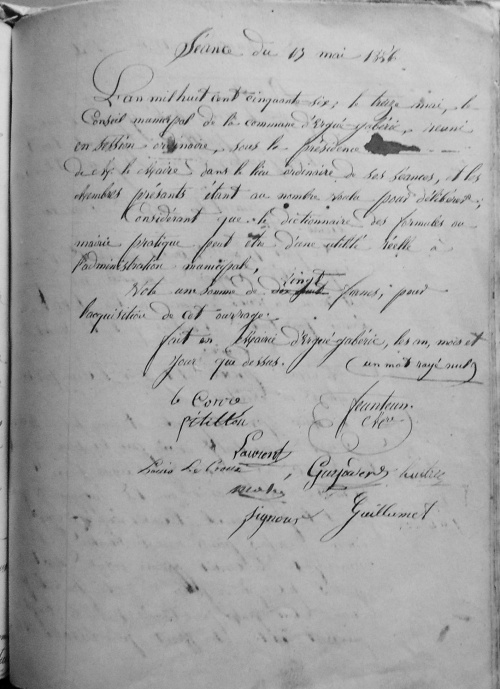 Séance du 13 mai 1856
L'an mil huit cent cinquante-six, le treize mai, le
Conseil municipal de la commune d'Ergué-gabéric, reuni
en session ordinaire, sous la présidence
de Mr. le Maire dans le lieu ordinaire de ses séances, et les
membres présants étant au nombre voulu pour délibérer;
Considérant que le dictionnaire des formules ou
mairie pratique peut être d'une utilité réelle à
l'administration municipale,
Vote un somme de vingt francs, pour
l'acquisition de cet ouvrage.
fait en Mairie d'Ergué-gabéric, les an, mois et
jour que dessus. (un mot rayé nul)
Le Corre
feunteun
pétillon
Laurent
Le Corre
Signour
Guillumet